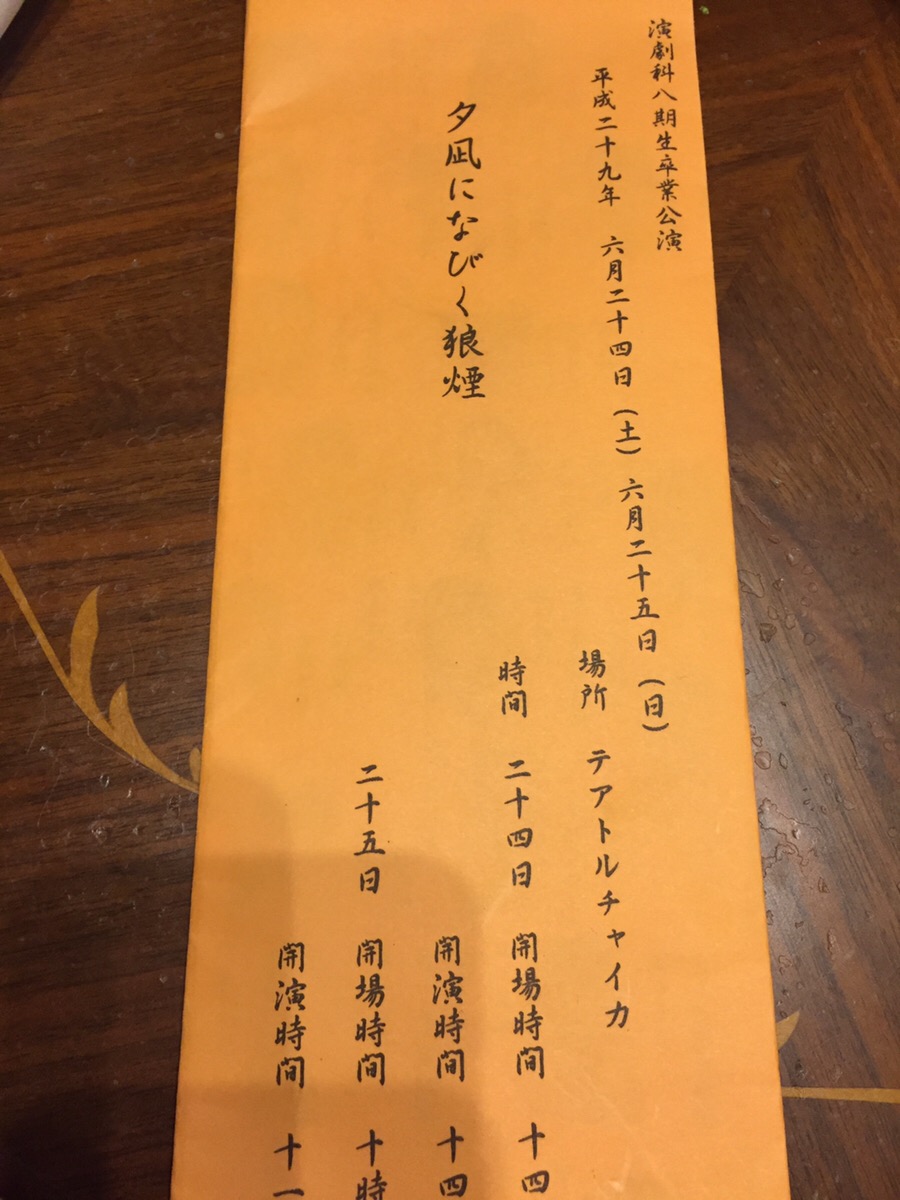 演劇科八期生卒業公演
平成二十九年 六月二十四日(土) 六月二十五日(日)
場所 テアトルチャイカ
夕凪になびく狼煙
時間 二十四日 開場時間 十四
開演時間 十四
二十五日 開場時間 十時
開演時間 十一